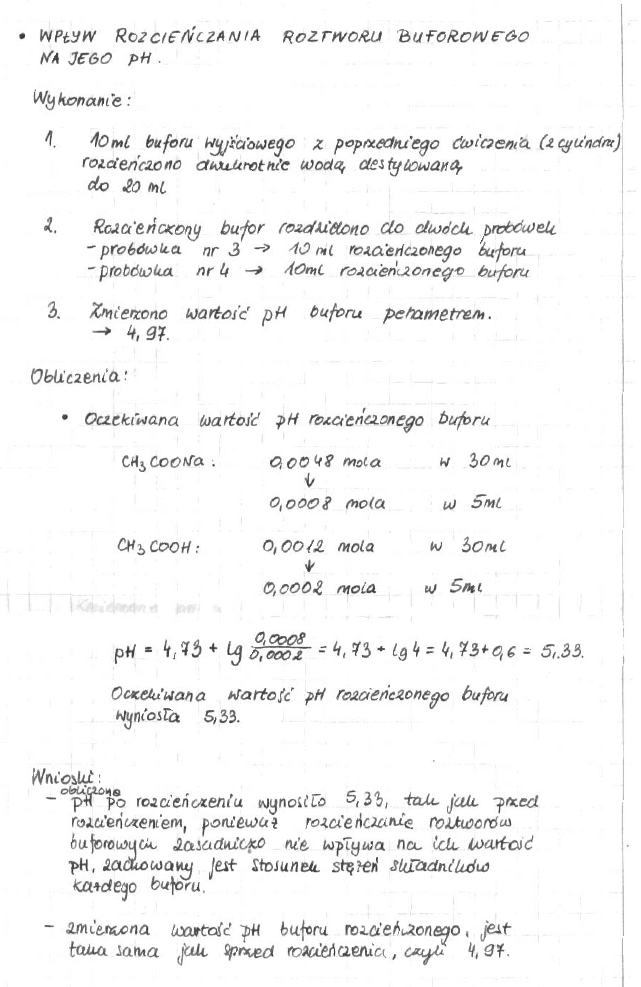 • WPŁYW ROZCIEŃCZANIA ROZTWORU BUFOROWEGO
NA JEGO pH.
Wykonanie:
1. 10ml buforu wyjściowego z poprzedniego ćwiczenia (z cylindra)
rozcieńczono dwukrotnie wodą destylowaną
do 20 ml
2. Rozcieńczony bufor rozdzielono do dwóch probówek
- probówka nr 3 → 10 ml rozcieńczonego buforu
- probówka nr 4 → 10ml rozcieńczonego buforu
3. Zmierzono wartość pH buforu pehametrem.
→ 4,97.
Obliczenia:
• Oczekiwana wartość pH rozcieńczonego buforu
CH3COONa: 0,0048 mola w 30ml
↓
0,0008 mola w 5ml
CH3COOH: 0,0012 mola w 30ml
↓
0,0002 mola w 5ml
pH = 4,73 + lg 0,0008/0,0002 = 4,73 + lg 4 = 4,73+0,6 = 5,33.
Oczekiwana wartość pH rozcieńczonego buforu
wyniosła 5,33.
Wnioski:
obliczone
- pH po rozcieńczeniu wynosiło 5,33, tak jak przed
rozcieńczeniem, ponieważ rozcieńczanie roztworów
buforowych zasadniczo nie wpływa na ich wartość
pH, zachowany jest stosunek stężeń składników
każdego buforu.
- zmierzona wartość pH buforu rozcieńczonego, jest
taka sama jak sprzed rozcieńczenia, czyli 4,97.